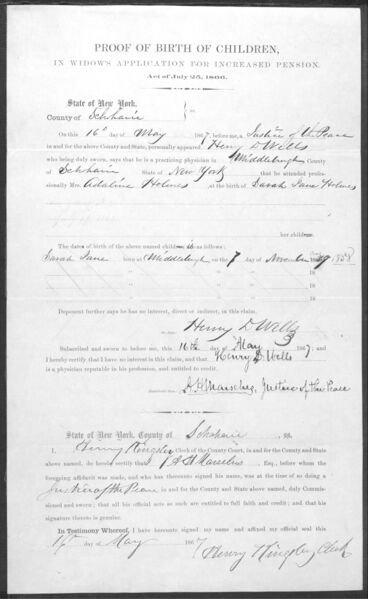 PROOF OF BIRTH OF CHILDREN,
IN WIDOW'S APPLICATION FOR INCREASED PENSION.
Act of July 25, 1866.
State of New York,
County of Schoharie } ss.
On this 16th day of May 1867, before me, a Justice of the Peace
in and for the above County and State, personally appeared Henry D Wells
who being duly sworn, says that he is a practicing physician in Middleburgh County
of Schoharie State of New York that he attended profes-
sionally Mrs. Adaline Holmes at the birth of Sarah Jane Holmes
her children.
The dates of birth of the above named children is as follows;
Sarah Jane born at Middleburgh on the 7 day of November 1858
" " " " 18
" " " " 18
" " " " 18
Deponent further says he has no interest, direct or indirect, in this claim.
Henry D Wells
Subscribed and sworn to before me, this 16th day May 1867; and
I hereby certify that I have no interest in this claim, and that Henry D Wells
is a physician reputable in his profession, and entitled to credit.
Justice of the Peace
State of New York, County of Schoharie ss.
I, Henry Kingsley Clerk of the County Court, in and for the County and State
above named, do hereby certify that Esq., before whom the
foregoing affidavit was made, and who has thereunto signed his name, was at the time of so doing a
Justice of the Peace in and for the County and State above named, duly Commis-
sioned and sworn; that all his official acts as such are entitled to full faith and credit; and that his
signature thereto is genuine.
In Testimony Whereof, I have hereunto signed my name and affixed my official seal this
17th day of May 1867
Henry Kingsley Clerk